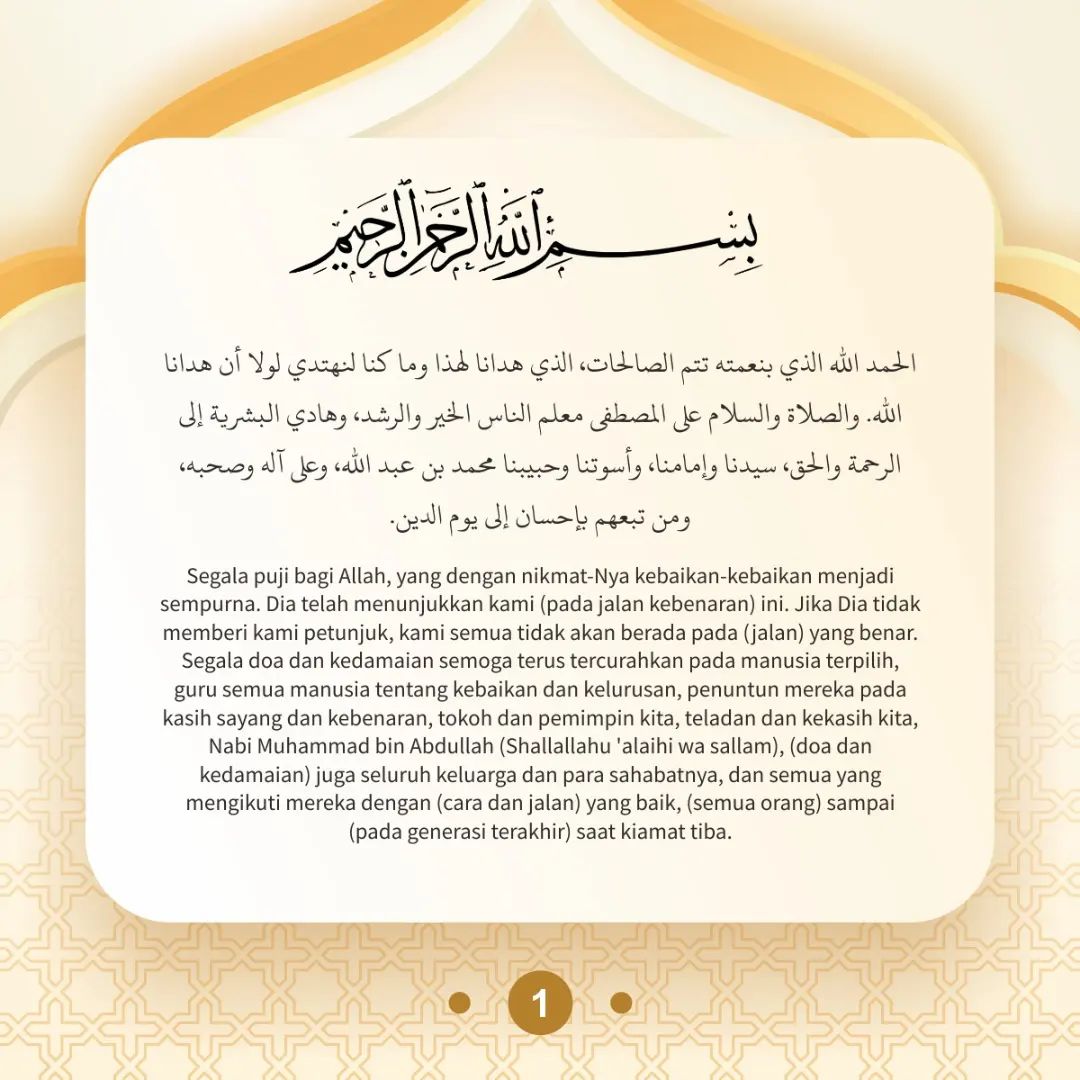 بسم الله الرحمن الرحيم
الحمد الله الذي بنعمته تتم الصالحات، الذي هدانا لهذا وما كنا لنهتدي لولا أن هدانا
الله. والصلاة والسلام على المصطفى معلم الناس الخير والرشد، وهادي البشرية إلى
الرحمة والحق، سيدنا وإمامنا، وأسوتنا وحبيبنا محمد بن عبد الله، وعلى آله وصحبه،
ومن تبعهم بإحسان إلى يوم الدين.
Segala puji bagi Allah, yang dengan nikmat-Nya kebaikan-kebaikan menjadi
sempurna. Dia telah menunjukkan kami (pada jalan kebenaran) ini. Jika Dia tidak
memberi kami petunjuk, kami semua tidak akan berada pada (jalan) yang benar.
Segala doa dan kedamaian semoga terus tercurahkan pada manusia terpilih,
guru semua manusia tentang kebaikan dan kelurusan, penuntun mereka pada
kasih sayang dan kebenaran, tokoh dan pemimpin kita, teladan dan kekasih kita,
Nabi Muhammad bin Abdullah (Shallallahu 'alaihi wa sallam), (doa dan
kedamaian) juga seluruh keluarga dan para sahabatnya, dan semua yang
mengikuti mereka dengan (cara dan jalan) yang baik, (semua orang) sampai
(pada generasi terakhir) saat kiamat tiba.
1